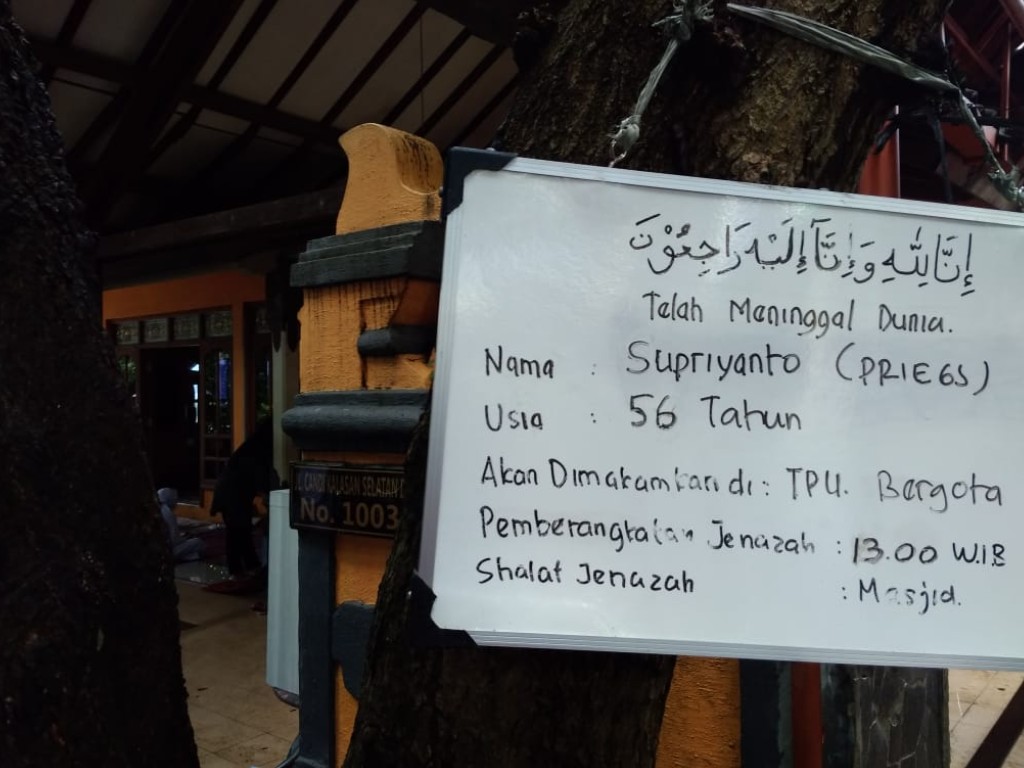 إِنَّا لِلّٰهِ وَإِنَّآ إِلَيْهِ رَاجِعُوْنَ
Telah Meninggal Dunia.
Nama : Supriyanto (PRIEGS)
Usia : 56 Tahun
Akan Dimakamkan di : TPU. Bergota
Pemberangkatan Jenazah : 13.00 W.I.B
Shalat Jenazah : Masjid.
CANDI KALASAN SELATAN
No. 1003